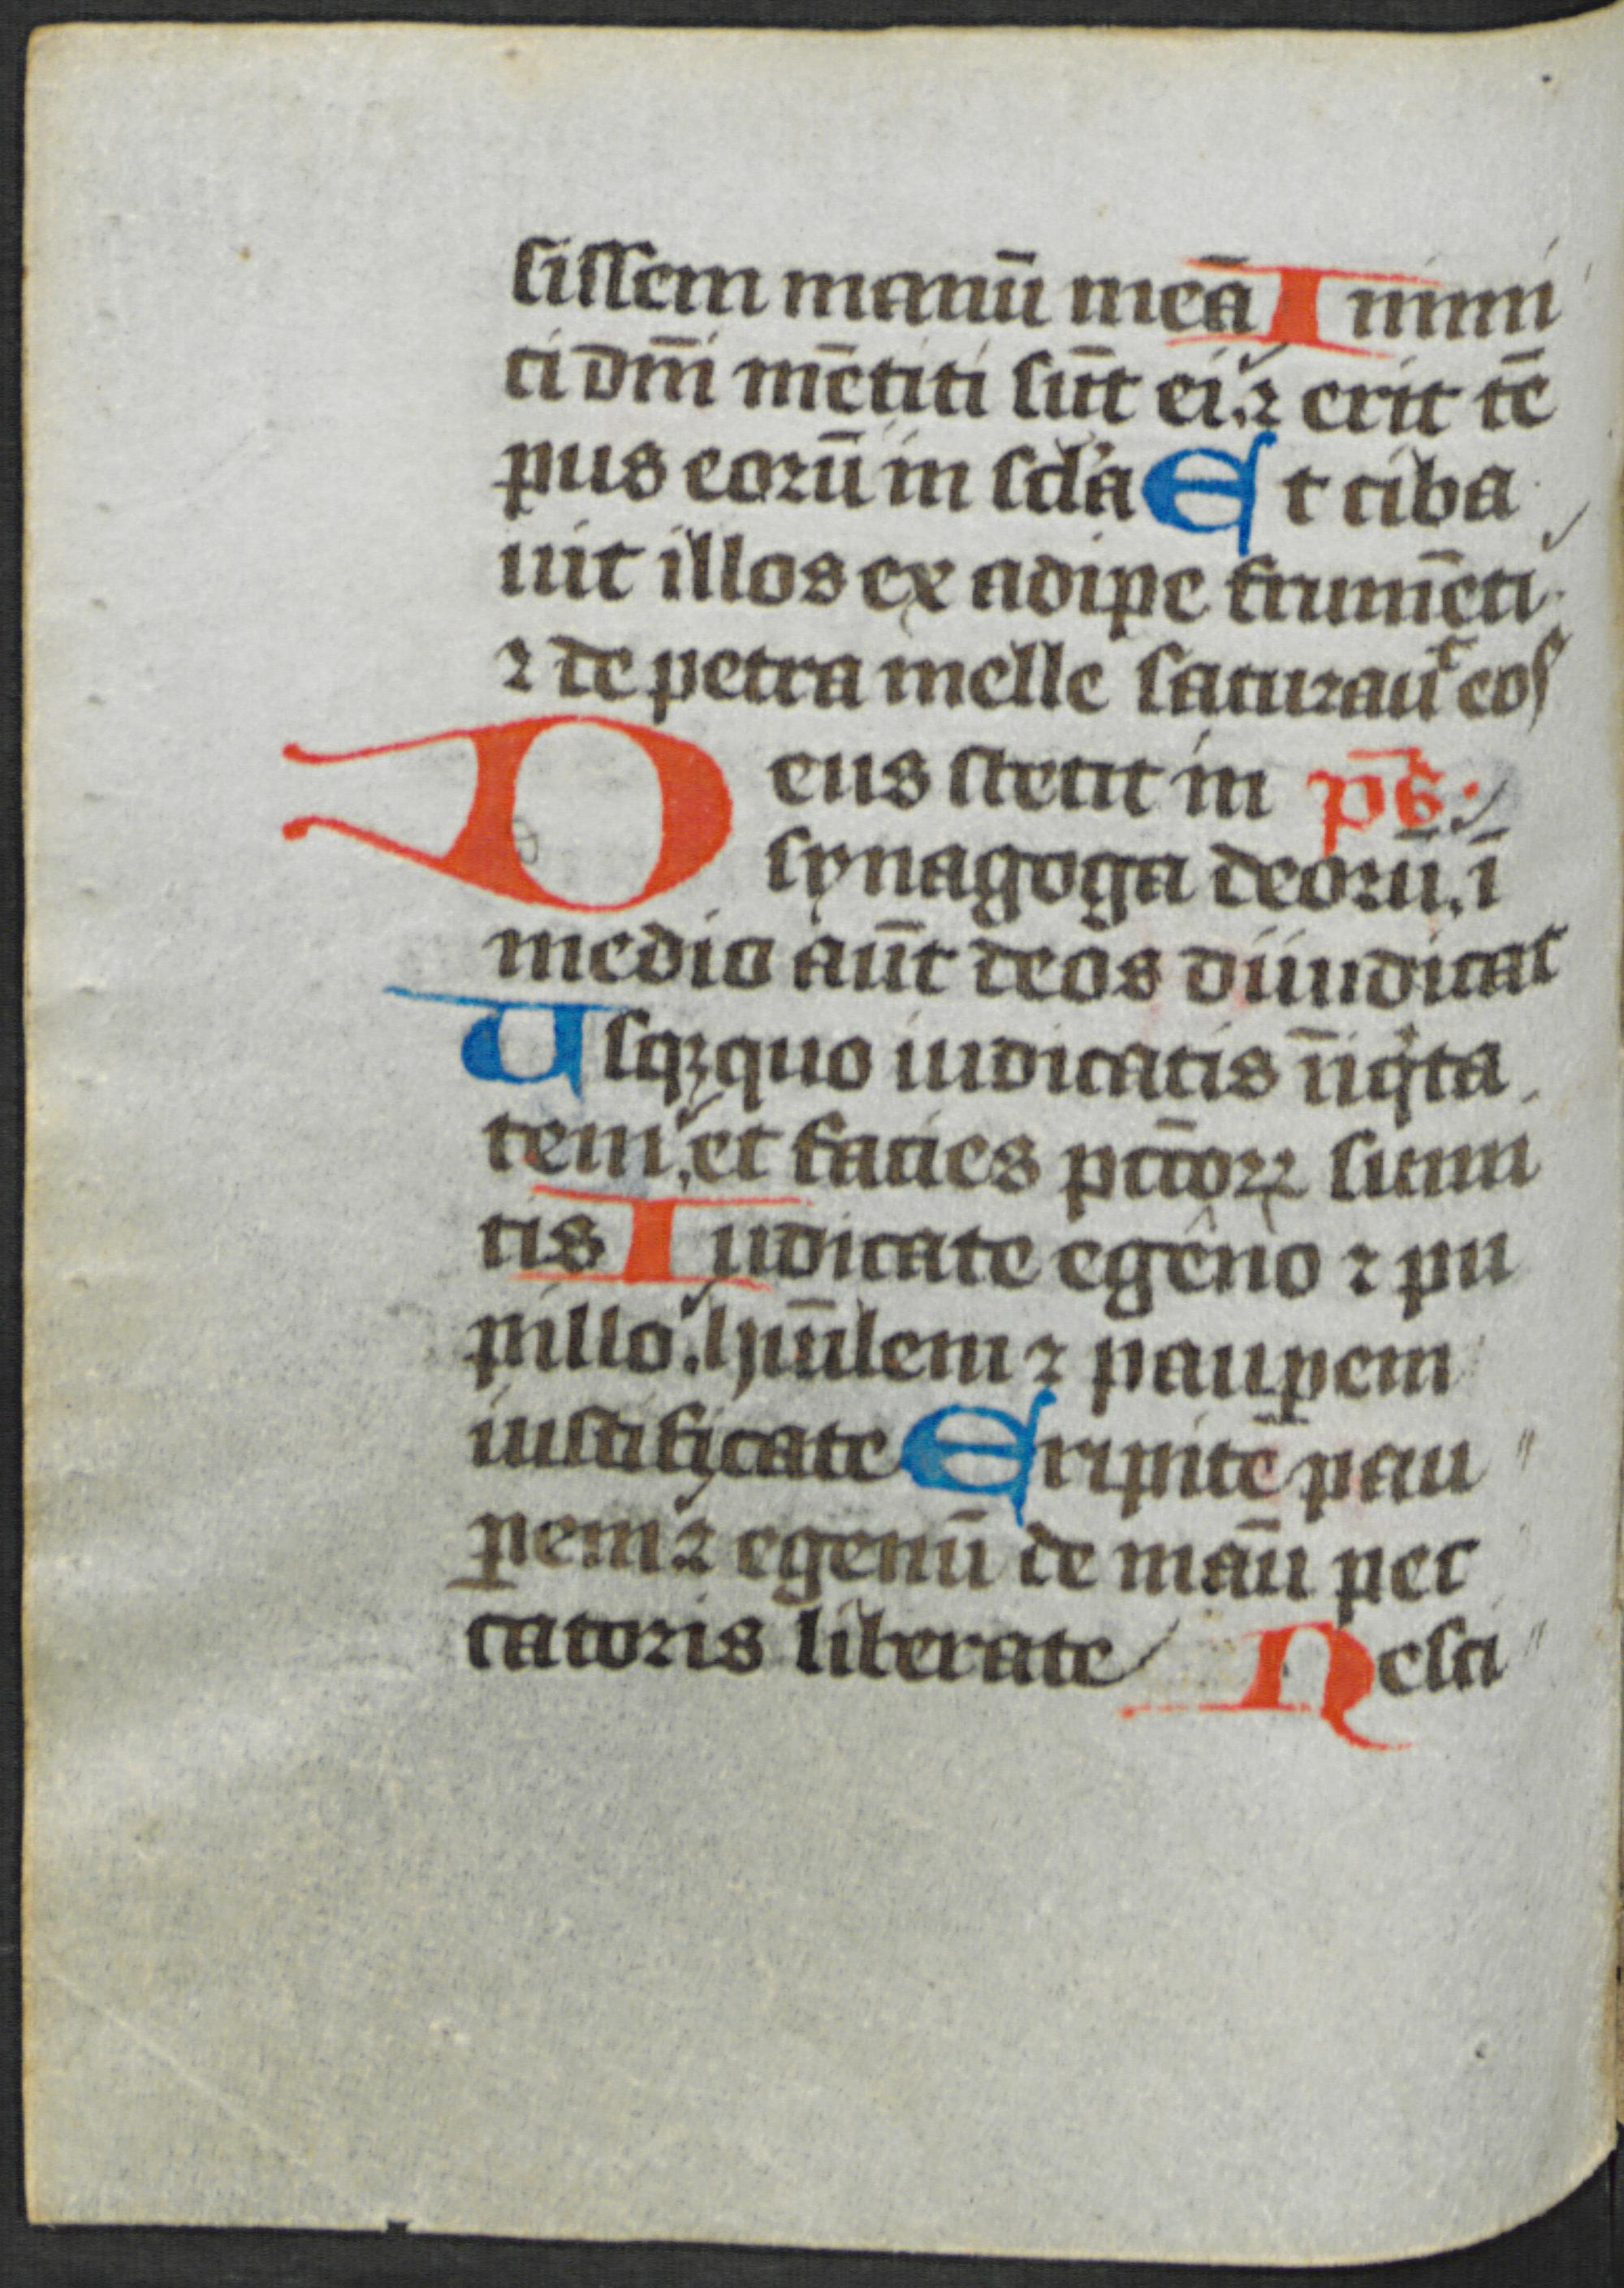 sissem manū meā Inimi
ci dm̄i mētiti sūt ei. ⁊ erit tē
pus eorū in scl'a Et ciba
uit illos ex adipe frumēti.
⁊ de petra melle saturauͭ eos
Deus stetit in pͫs.
synagoga deorū. ī
medio aūt deos diiudicat
Usqꝫquo iudicatis īiqͥta
tem. et facies pct̄oꝝ sumi
tis Iudicate egeno ⁊ pu
pillo. hūilem ⁊ pauꝑem
iustificate Eripite pau
ꝑem ⁊ egenū de manū pec
catoris liberate Nesci